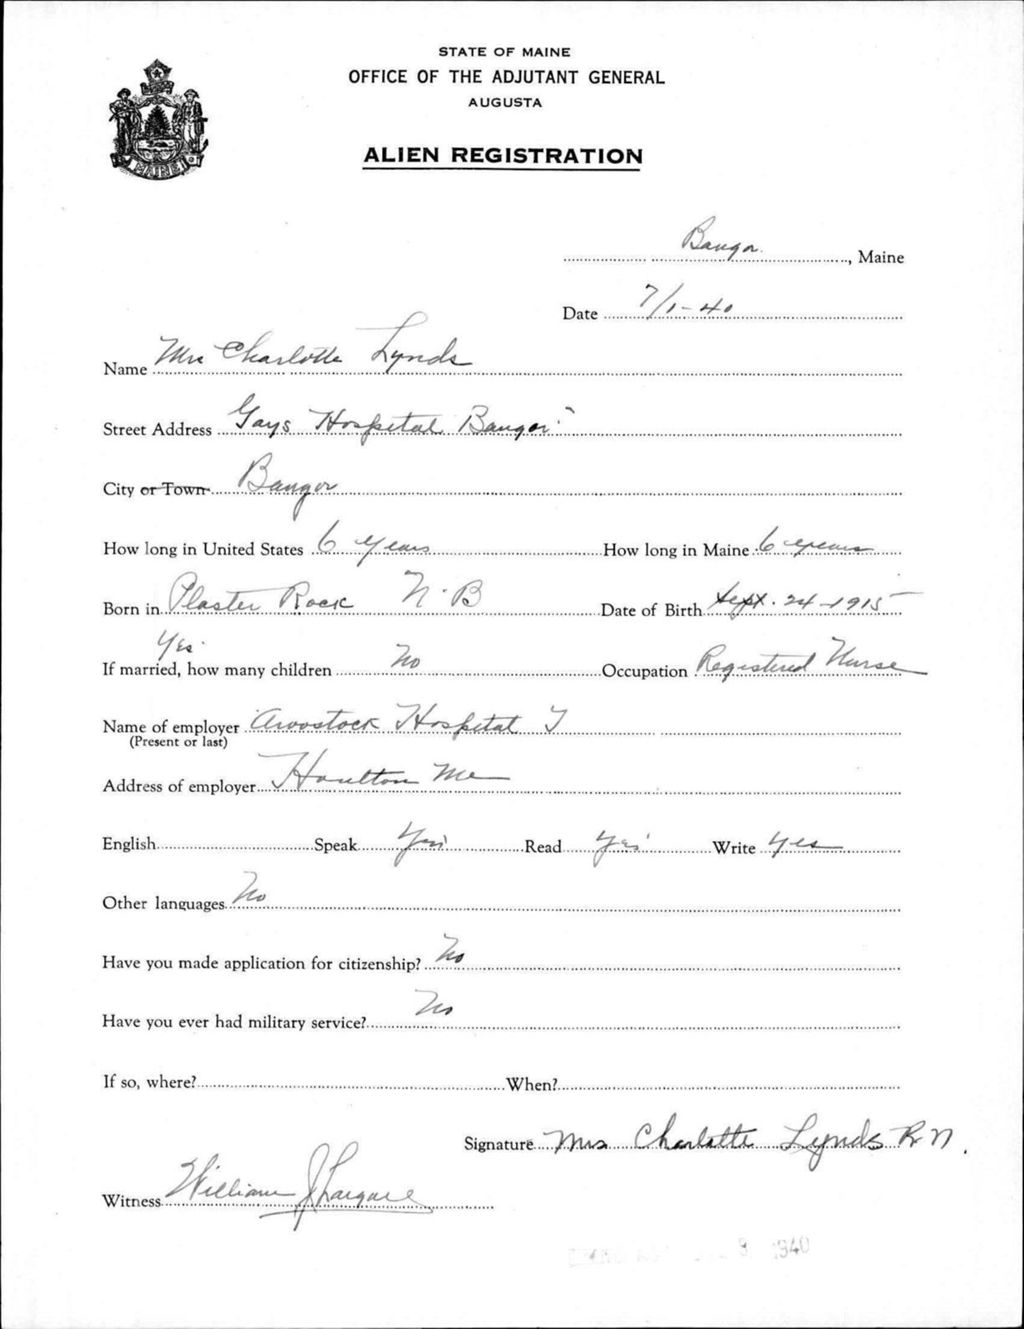 STATE OF MAINE
OFFICE OF THE ADJUTANT GENERAL
AUGUSTA
ALIEN REGISTRATION
MAINE
Bangor, Maine
Date 7/1-40
Name Mrs Charlotte Lynds
Street Address Gays Hospital Bangor
City or Town Bangor
How long in United States 6 years How long in Maine 6 years
Born in Plaster Rock N.B Date of Birth Sept. 24-1915
Yes
If married, how many children No Occupation Registered Nurse
Name of employer Aroostock Hospital
(Present or last)
Address of employer Houlton Me
English Speak Yes Read Yes Write Yes
Other languages No
Have you made application for citizenship? No
Have you ever had military service? No
If so, where? When?
Signature Mrs Charlotte Lynds R N.
Witness William J
1940